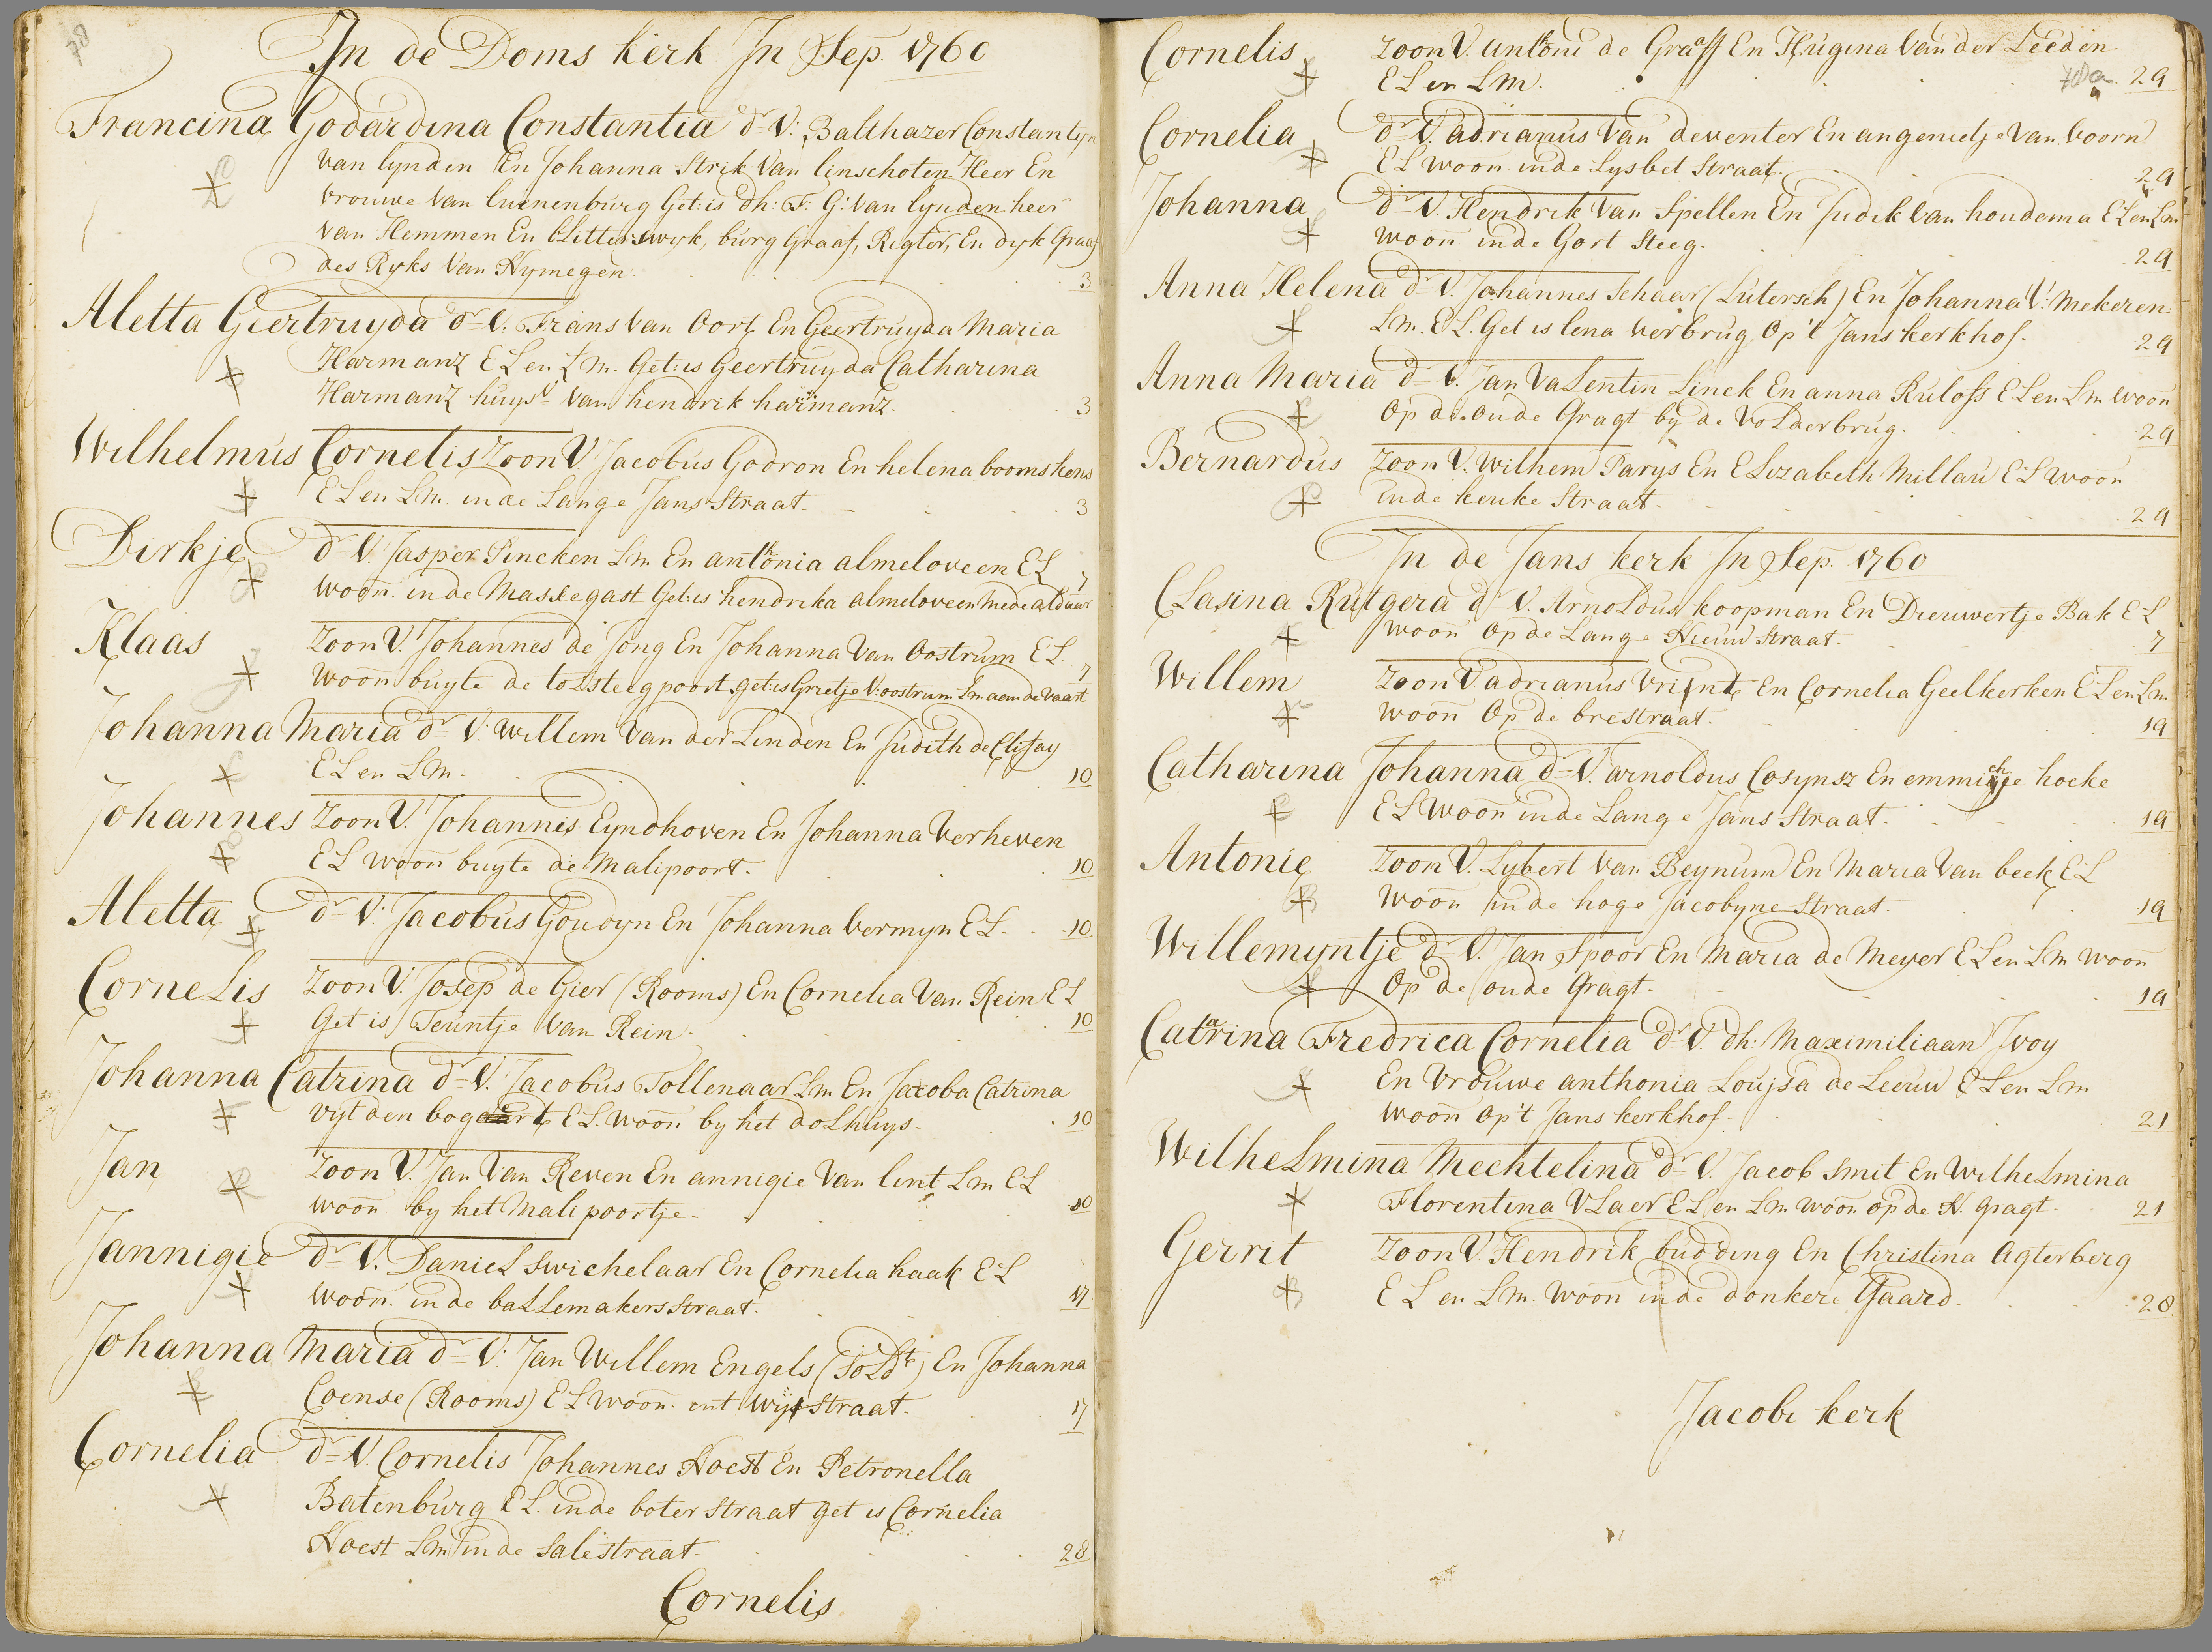 78
In de Doms kerk In Sep. 1760
Francina Godardina Constantia dr V: Balthazer Constantyn
van lynden En Johanna Strik Van linschoten Heer En
vrouwe van lunenburg Get: is dh: F: G: van lynden heer
van Hemmen En blitterswyk, burg Graaf, Regter, En dyk Graaf
des Ryks Van Nymegen. 3
Aletta Geertruyda dr V. Frans van Oort En Geertruyda Maria
Harmanz EL en Lm. Get: is Geertruyda Catharina
Harmanz huysv van hendrik harmanz. 3
Wilhelmus Cornelis Zoon V. Jacobus Godron En helena boomskens
EL en Lm. in de Lange Jans Straat. 3
Dirkje dr V. Jasper Pincken Lm En anthonia almeloveen EL 7
woon. in de Massegast Get: is hendrika almeloveen mede aldaar
Klaas Zoon V. Johannes de Jong En Johanna Van Oostrum EL. 7
woon buyte de tolsteegpoort get: is Grietje V: oostrum Lm aan de vaart
Johanna Maria dr V: Willem Van der Linden En Judith de Clijay
EL en Lm. 10
Johannes Zoon V. Johannes Eyndhoven En Johanna Verheven
EL woon buyte de Malipoort. 10
Aletta dr V: Jacobus Goudyn En Johanna Vermyn EL. 10
CorneLis Zoon V. Josep de Gier (Rooms) En Cornelia Van Rein EL
Get is Teuntje Van Rein. 10
Johanna Catrina dr V. Jacobus Tollenaar Lm En Jacoba Catrina
vyt den bogaart EL. woon by het doLhuys. 10
Jan Zoon V. Jan Van Reven En annigie Van lint Lm EL
woon by het Mali poortje. 10
Jannigie dr V. DanieL swichelaar En Cornelia haak EL
woon. in de baLLemakers Straat. 17
Johanna Maria dr V. Jan Willem Engels (SoLdt) En Johanna
Coense (Rooms) EL woon. int Wystraat. 17
Cornelia dr V. Cornelis Johannes Hoest En Petronella
Batenburg EL. in de boter Straat get is Cornelia
Hoest Lm in de Salestraat. 28
Cornelis
Cornelis Zoon V. anthoni de Graaff En Hugina Van der Leeden
EL en Lm. 78a 29
Cornelia dr V. adrianus Van deventer En angenietje Van voorn
EL woon in de Lysbet Straat. 29
Johanna dr V. Hendrik Van Spellen En Judik Van houdema EL en Lm
woon in de Gort Steeg. 29
Anna Helena dr V. Johannes Schaar (Lutersch) En Johanna V: Mekeren
Lm. EL. Get is lena verbrug Op 't Jans kerkhof. 29
Anna Maria dr V. Jan VaLentin Linck En anna Rulofs EL en Lm woon
Op de oude Gragt by de VoLderbrug. 29
Bernardus Zoon V. Wilhem Parys En ELizabeth Millau EL woon
in de keuke Straat. 29
In de Jans kerk In Sep. 1760
CLasina Rutgera dr V. ArnoLdus koopman En Dieuwertje Bak EL
woon Op de Lange Nieuw Straat. 7
Willem Zoon V. adrianus Vrint En Cornelia Geelkerken EL en Lm
woon Op de brestraat. 19
Catharina Johanna dr V. arnoldus Cosynsz En emmichje hoeke
EL woon in de Lange Jans Straat. 19
Antonie Zoon V. Lybert Van Beynum En Maria Van beek EL
woon in de hoge Jacobyne Straat. 19
Willemyntje dr V. Jan Spoor En Maria de Meyer EL en Lm woon
Op de oude Gragt. 19
Catarina Fredrica Cornelia dr V. dh: Maximiliaan Ivoy
En Vrouwe anthonia Louysa de Leeuw EL en Lm
woon Op't Jans kerkhof. 21
WilheLmina Mechtelina dr V. Jacob Smit En WilheLmina
Florentina VLaer EL en Lm woon op de N. Gragt. 21
Gerrit Zoon V. Hendrik budding En Christina Agterberg
EL en Lm. woon in de donkere Gaard. 28
Jacobi kerk